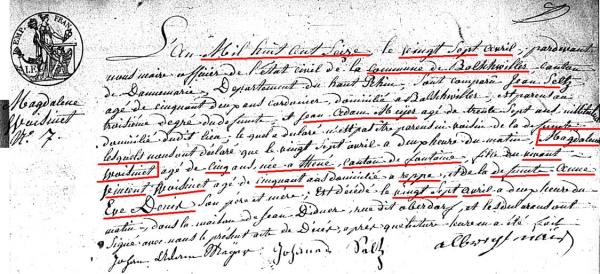 L'an Mil huit cent seize le vingt sept avril, pardevant
nous maire officier de l'état civil de la commune de Balthwiller canton
de Dannemarie, Département du haut Rhin, sont comparu Jean Seltz
agé de cinquant deux ans cordonier, domicilié à Balthwiller, et parent au
troisieme degre du defunte et Jean Adam Meÿer agé de trente sept ans,
domicilié dudit lieu, le quel a declaré n'est pat etre parens ni voisin de la defunte
lesquels nous ont déclaré que le vingt sept avril a deux heure du matin, Magdalene
Woisinet agé de cinq ans, née a canton de fontaine, fille du vivant
Woisinet agé de cinquant ans domicilié a reppe, et de la defunte Anne
Eve Denis son pere et mère, est décédé le vingt sept avril a deux heure du
matin, dans la maison de Jean Didner, rue dit oberdorf, et les declarans ont
signé avec nous le present acte de Décès, apres que lecture leur en a été fait
Magdalene
Woisinet
N.º 7
Johan Adam Maÿer Johanes Seltz